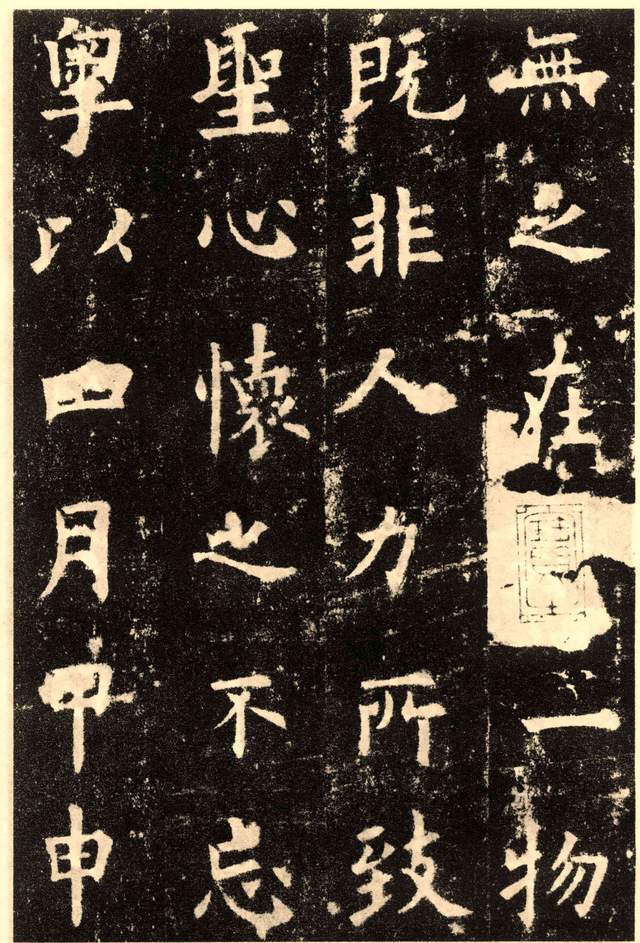 無之在一物
既非人力所致
聖心懷之不忘
粤以四月甲申